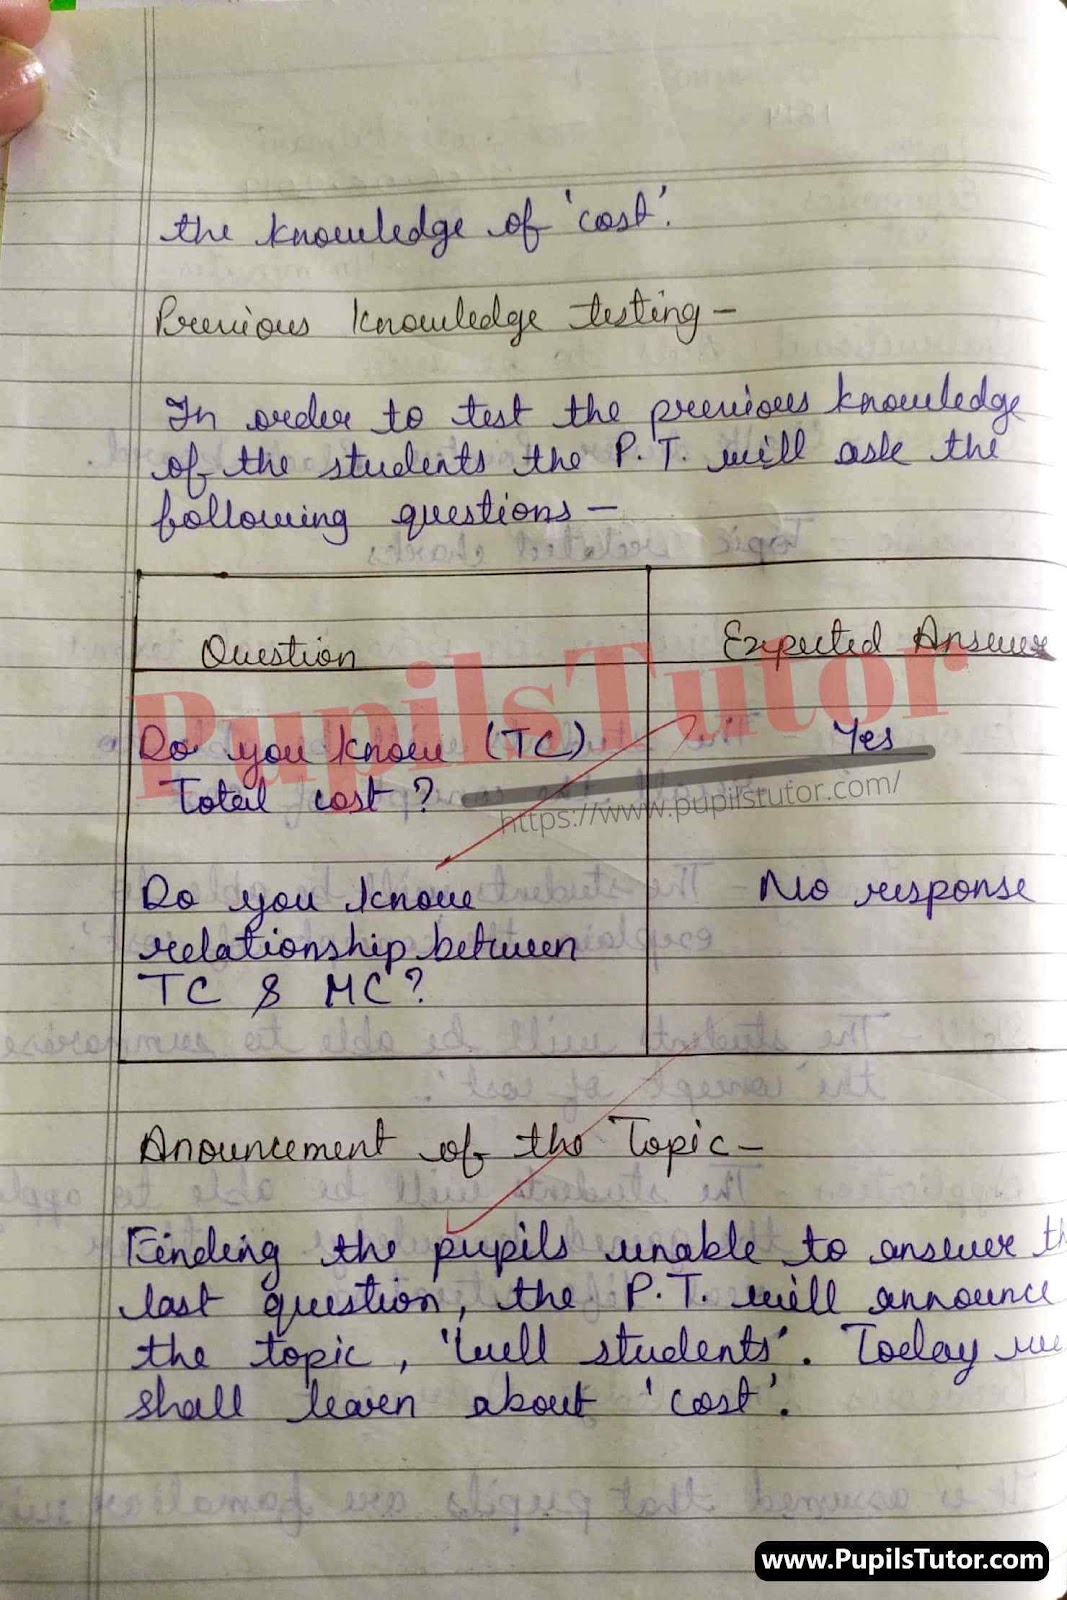 the knowledge of 'cost'.
Previous knowledge testing –
In order to test the previous knowledge
of the students the P.T. will ask the
following questions –
Question
Expected Answer
Do you know (TC)
Total cost ?
Yes
Do you know
relationship between
TC & MC?
No response
Anouncement of the Topic –
Finding the pupils unable to answer th
last question, the P.T. will announce
the topic, 'Well students'. Today we
shall learn about 'cost'.
PupilsTutor
https://www.pupilstutor.com/
www.PupilsTutor.com